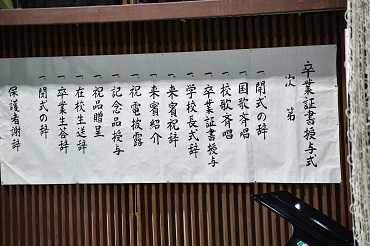 卒業証書授与式
次第
一 開式の辞
一 国歌斉唱
一 校歌斉唱
一 卒業証書授与
一 学校長式辞
一 来賓祝辞
一 来賓紹介
一 祝電披露
一 記念品授与
一 祝品贈呈
一 在校生送辞
一 卒業生答辞
一 閉式の辞
保護者謝辞